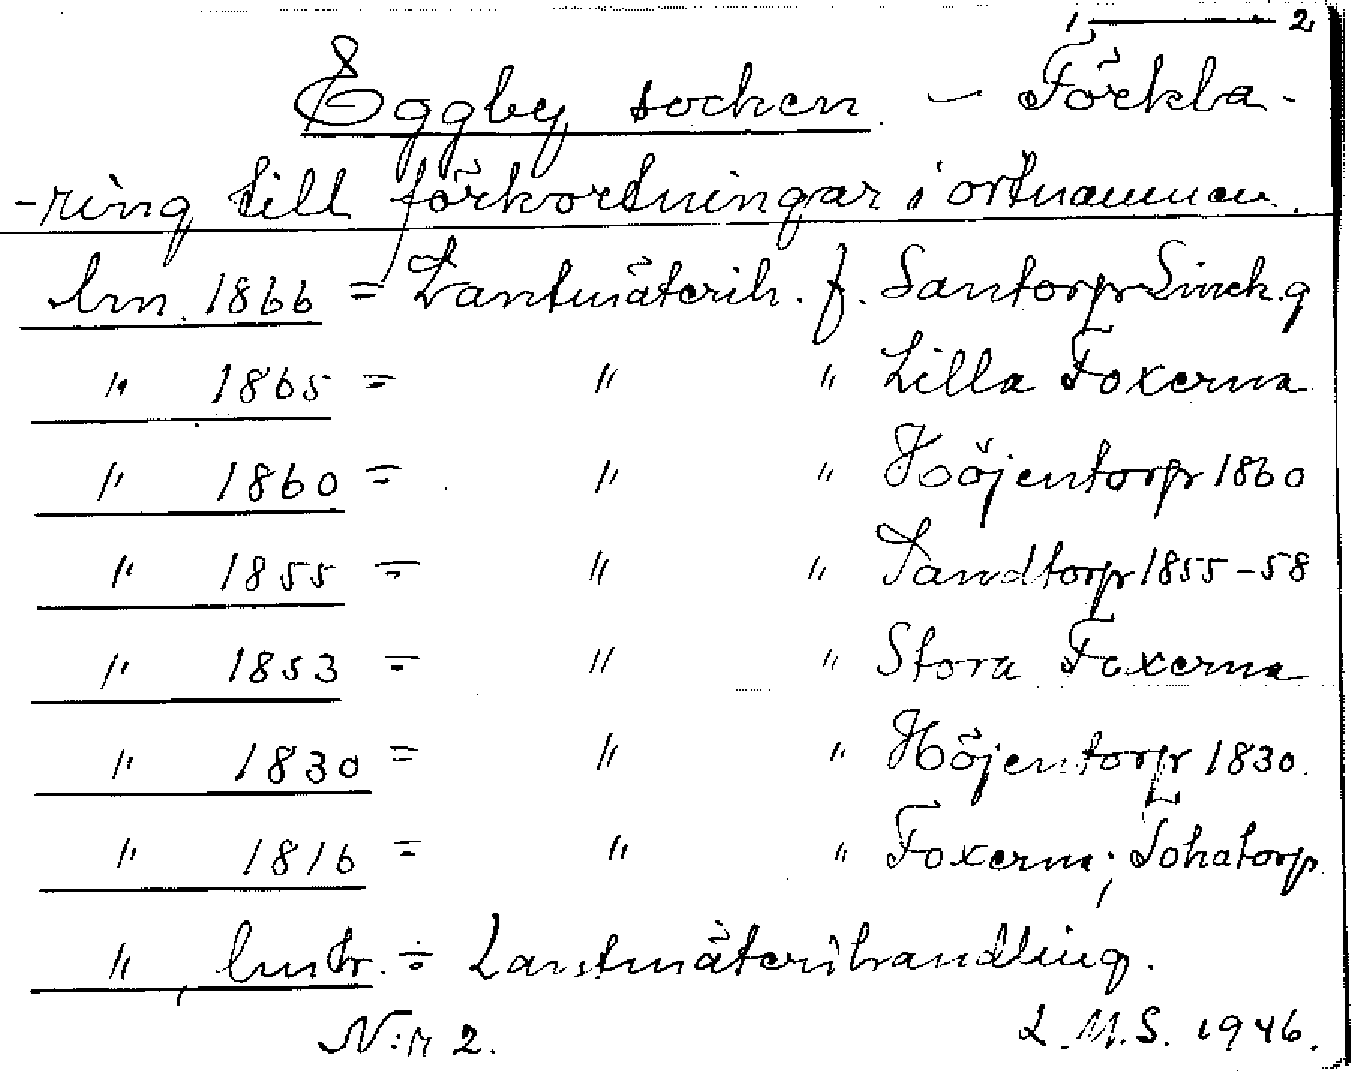 1 — 2
Eggby socken — Förkla-
-ring till förkortningar i ortnamnen.
lm. 1866 = Lantmäterih. f. Santorp
" 1865 = " " Lilla Foxerna
" 1860 = " " Höjentorp 1860
" 1855 = " " Sandtorp 1855-58
" 1853 = " " Stora Foxerna
" 1830 = " " Höjentorp 1830.
" 1816 = " " Foxerna;
", lmtr. = Lantmäterihandling.
N:r 2. L.M.S. 1946.